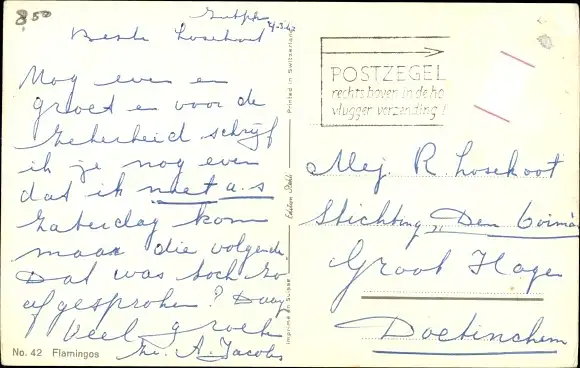 8.50
Zutphen
4-3-62
Beste Losekoot
Mog even en
groet en voor de
Zekerheid schrijf
ik je nog even
dat ik niet a.s
Zaterdag kom
maar die volgende.
Dat was toch zo
afgesproken? Daag
Veel groeten
A. Jacobs
No. 42 Flamingos
Printed in Switzerland
Edition Stehli
Imprimé en Suisse
POSTZEGEL
rechts boven in de ho
vlugger verzending!
Mej. R. Losekoot
Stichting "Den
Groot Hagen
Doetinchem